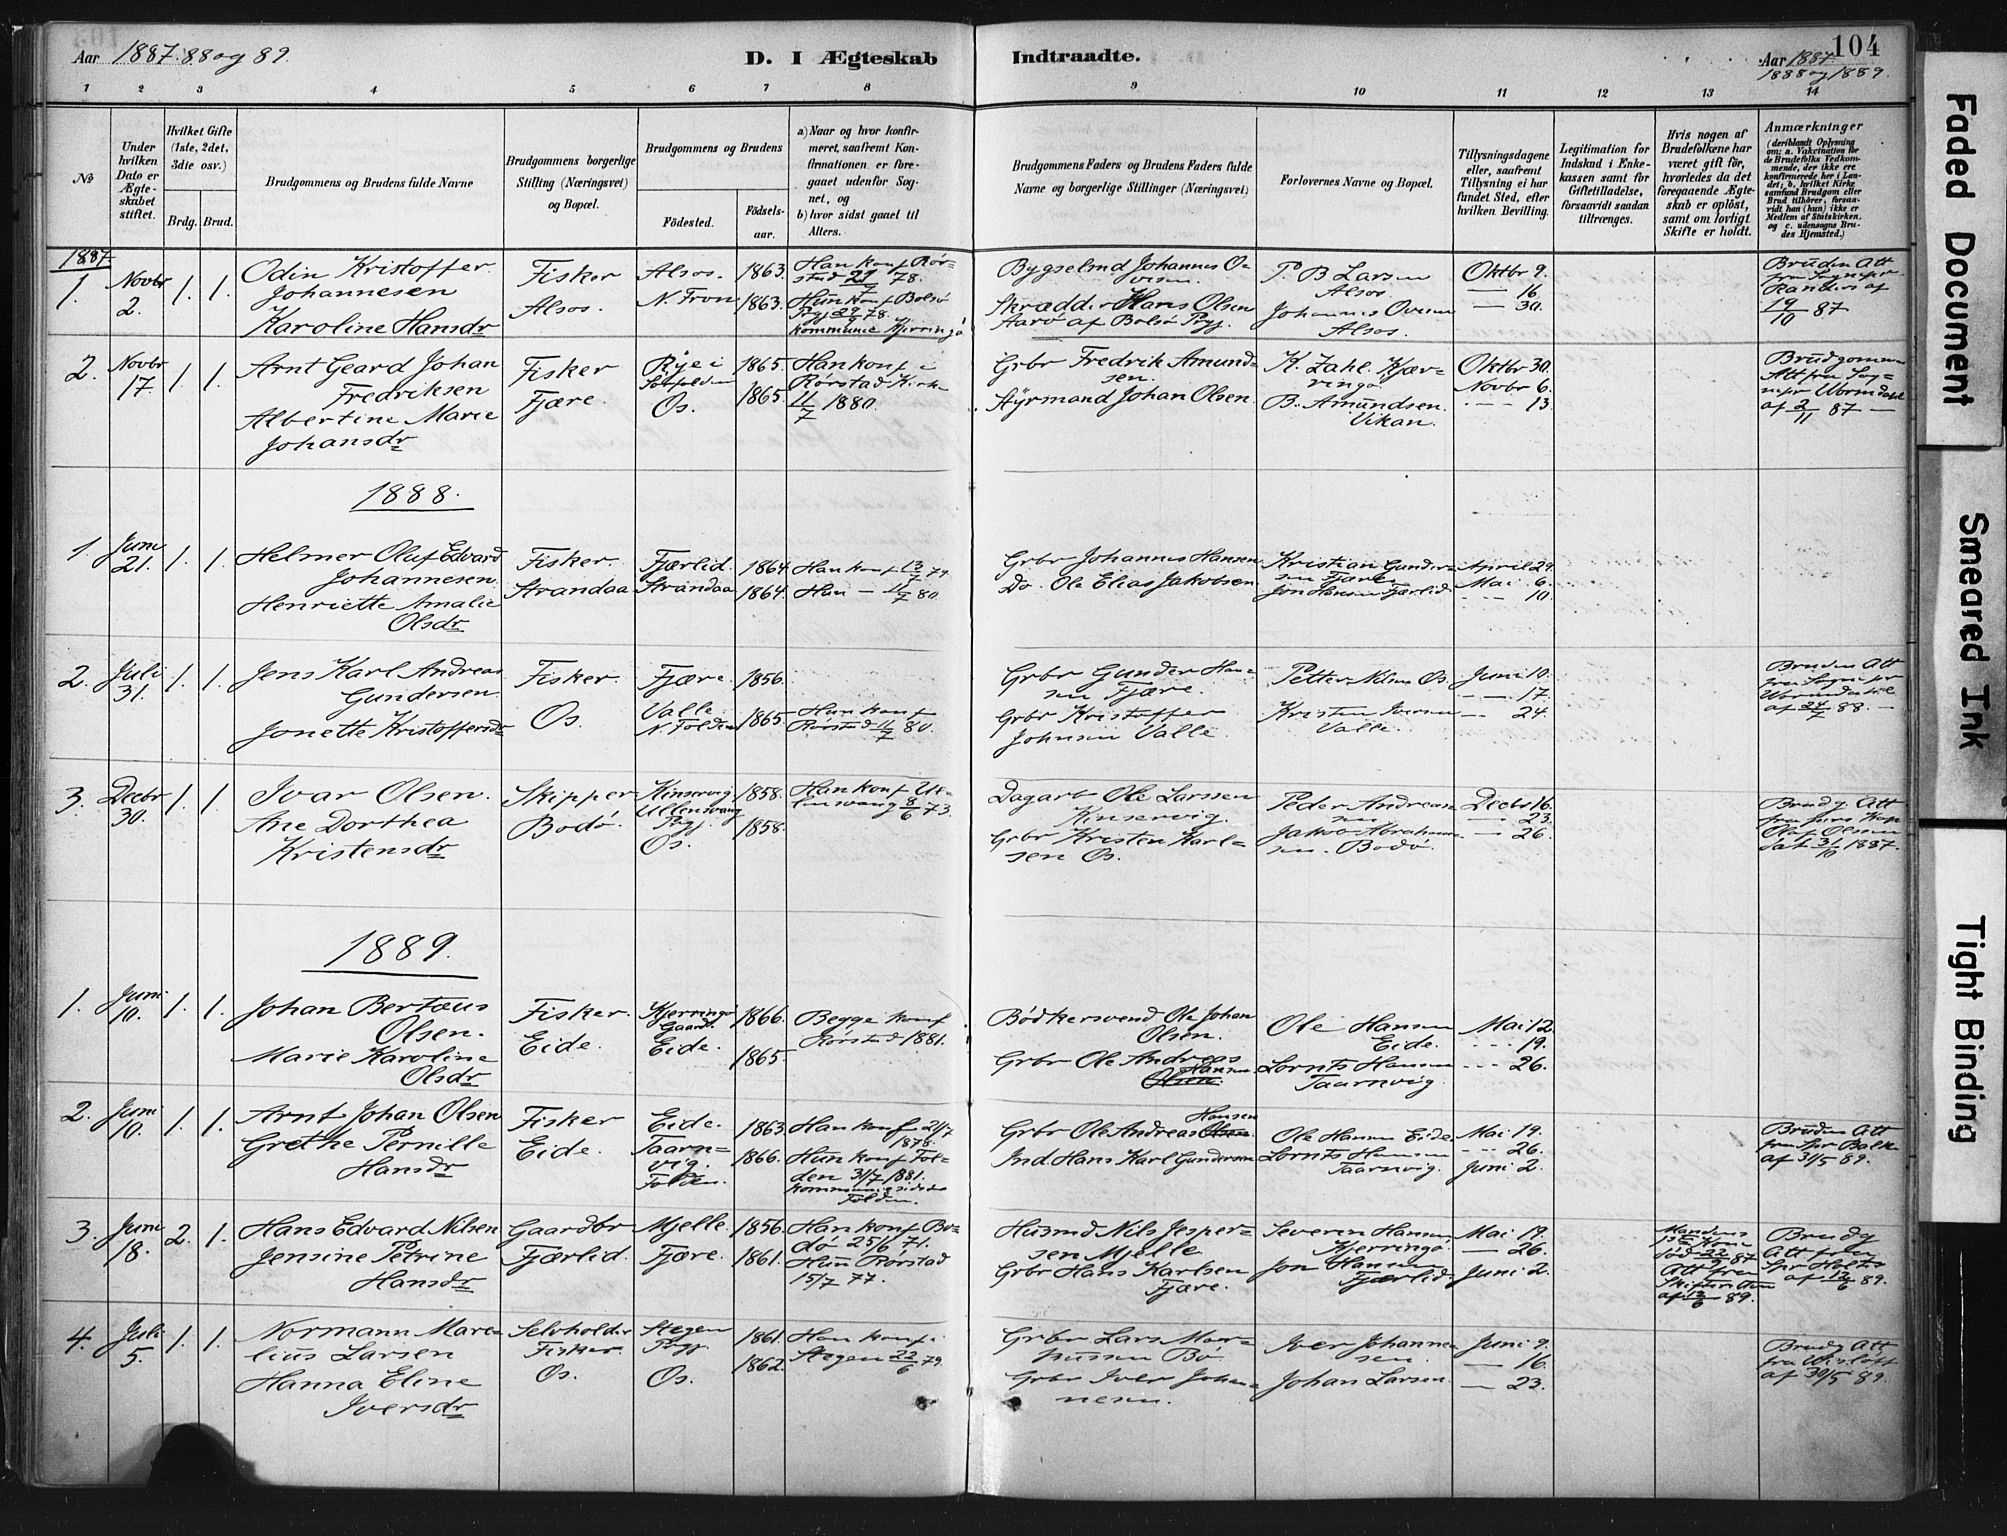 Aar 1887. 88 og 89.
D. I Ægteskab Indtraadte.
104
Aar 1887.
1888 og 1889.
1 2 3 4 5 6 7 8 9 10 11 12 13 14
No
Under hvilken Dato er Ægteskabet stiftet.
Hvilket Gifte (1ste, 2det, 3die osv.)
Brdg. Brud.
Brudgommens og Brudens fulde Navne
Brudgommens borgerlige Stilling (Næringsvei) og Bopæl.
Brudgommens og Brudens
Fødested.
Fødselsaar.
a) Naar og hvor konfirmeret, saafremt Konfirmationen er foregaaet udenfor Sognet, og
b) hvor sidst gaaet til Alters.
Brudgommens Faders og Brudens Faders fulde Navne og borgerlige Stillinger (Næringsvei)
Forlovernes Navne og Bopæl.
Tillysningsdagene eller, saafremt Tillysning ei har fundet Sted, efter hvilken Bevilling.
Legitimation for Indskud i Enkekassen samt for Giftetilladelse, forsaavidt saadan tiltrænges.
Hvis nogen af Brudefolkene har været gift før, hvorledes da det foregaaende Ægteskab er opløst, samt om lovligt Skifte er holdt.
Anmærkninger
(deriblandt Oplysning om: a. Vakcination for de Brudefolks Vedkommende, der ikke ere konfirmerede her i Landet; b. hvilket Kirkesamfund Brudgom eller Brud tilhører, forsaavidt han (hun) ikke er Medlem af Statskirken, og c. udensogns Brudes Hjemsted.)
1887
1. Novbr 2. 1. 1. Odin Kristoffer Johannesen
Karoline Hansdr
Fisker Alsos.
Alsos. 1863.
N. Fron 1863.
Han konf Rørstad 21/7 78.
Hun konf Bolsø Prgj 29/9 78.
kommunic Kjerringø
Bygselmd Johannes
Skrædder Hans Olsen
Aarø af Bolsø Prgj.
P. B Larsen Alsos
Johannes Alsos.
Oktbr 9.
— 16.
— 30.
Bruden Att fra
af 19/10 87
2. Novbr 17. 1. 1. Arnt Geard Johan Fredriksen
Albertine Marie Johansdr
Fisker Fjære.
1865.
Os. 1865.
Han konf i Rørstad Kirke 11/7 1880.
Grbr Fredrik Amundsen.
Styrmand Johan Olsen
K. Zahl Kjærringø
B. Amundsen. Vikan.
Oktbr 30.
Novbr 6.
— 13.
Brudgommens Att fra Sognepr
af 2/11 87 —
1888.
1. Juni 21. 1. 1. Helmer Oluf Edvard Johannesen
Henriette Amalie Olsdr
Fisker. Strandaa
Fjærlid. 1864
Strandaa 1864.
Han konf 13/7 79
Hun — 11/7 80.
Grbr Johannes Hansen
Do. Ole Elias Jakobsen
Kristian Gundersen Fjære
Jon Hansen Fjærlid.
April 29.
Mai 6.
— 10.
2. Juli 31. 1. 1. Jens Karl Andreas Gundersen
Jonette Kristoffersdr
Fisker. Os.
Fjære. 1856.
Valle N. Folden 1865.
Hun konf Rørstad 11/7 80.
Grbr Gunder Hansen Fjære.
Grbr Kristoffer Johnsen Valle.
Petter Nilsen Os.
Kristen Iversen Valle.
Juni 10.
— 17.
— 24.
Bruden Att fra Sognepr
af 24/7 88. —
3. Decbr 30. 1. 1. Ivar Olsen.
Ane Dorthea Kristensdr
Skipper Bodø.
Kinservig Ullensvang Prgj. 1858.
Os. 1858.
Han konf Ullensvang 8/6 73.
Dagarb Ole Larssen Kinservig.
Grbr Kristen Karlsen Os.
Peder Andreassen
Jakob Abrahamsen. Bodø.
Decbr 16.
— 23.
— 26.
Brudg Att fra Kap Olaf Olsen
dat 31/10 1887.
1889.
1. Juni 10. 1. 1. Johan Bertæus Olsen.
Marie Karoline Olsdr
Fisker. Eide.
Kjerringø Gaard. 1866.
Eide. 1865
Begge konf Rørstad 1881.
Bødkersvend Ole Johan Olsen.
Grbr Ole Andreas Hansen Olsen
Ole Hansen Eide.
Lornts Hansen Taarnvig.
Mai 12.
— 19.
— 26.
2. Juni 10. 1. 1. Arnt Johan Olsen
Grethe Pernille Hansdr
Fisker Eide.
Eide. 1863
Taarnvig. Folden. 1866.
Han konf 21/7 1878.
Hun konf Folden 31/7 1881.
kommunic sidste Folden.
Grbr Ole Andreas Olsen Hansen
Ind. Hans Karl Gundersen
Ole Hansen Eide
Lornts Hansen Taarnvig.
Mai 19.
— 26.
Juni 2.
Bruden Att fra Spr Balke af 31/5 89.
3. Juni 18. 2. 1. Hans Edvard Nilsen
Jensine Petrine Hansdr
Gaardbr Fjærlid.
Mjelle. 1856.
Fjære. 1861.
Han konf Bodø 25/6 71.
Hun Rørstad 15/7 77.
Husmd Nils Jespersen Mjelle
Grbr Hans Karlsen Fjære.
Severin Hansen Kjerringø
Jon Hansen Fjærlid.
Mai 19.
— 26.
Juni 2.
Mandens 1ste Kone død 22/9 87
Att fra Skifteretten af 12/6 89.
Brudg Att fra Spr Holts af 12/6 89.
4. Juli 5. 1. 1. Normann Marelius Larsen
Hanna Eline Iversdr
Selvholder Fisker. Os.
Stegen Prgj. 1861.
Os. 1862.
Han konf i Stegen 22/6 79.
Grbr Lars Markussen Bø
Grbr Iver Johannesen.
Iver Johannesen.
Johan Larsen.
Juni 9.
— 16.
— 23.
Brudg Att fra Wisløff af 30/5 89.
Faded Document
Smeared Ink
Tight Binding